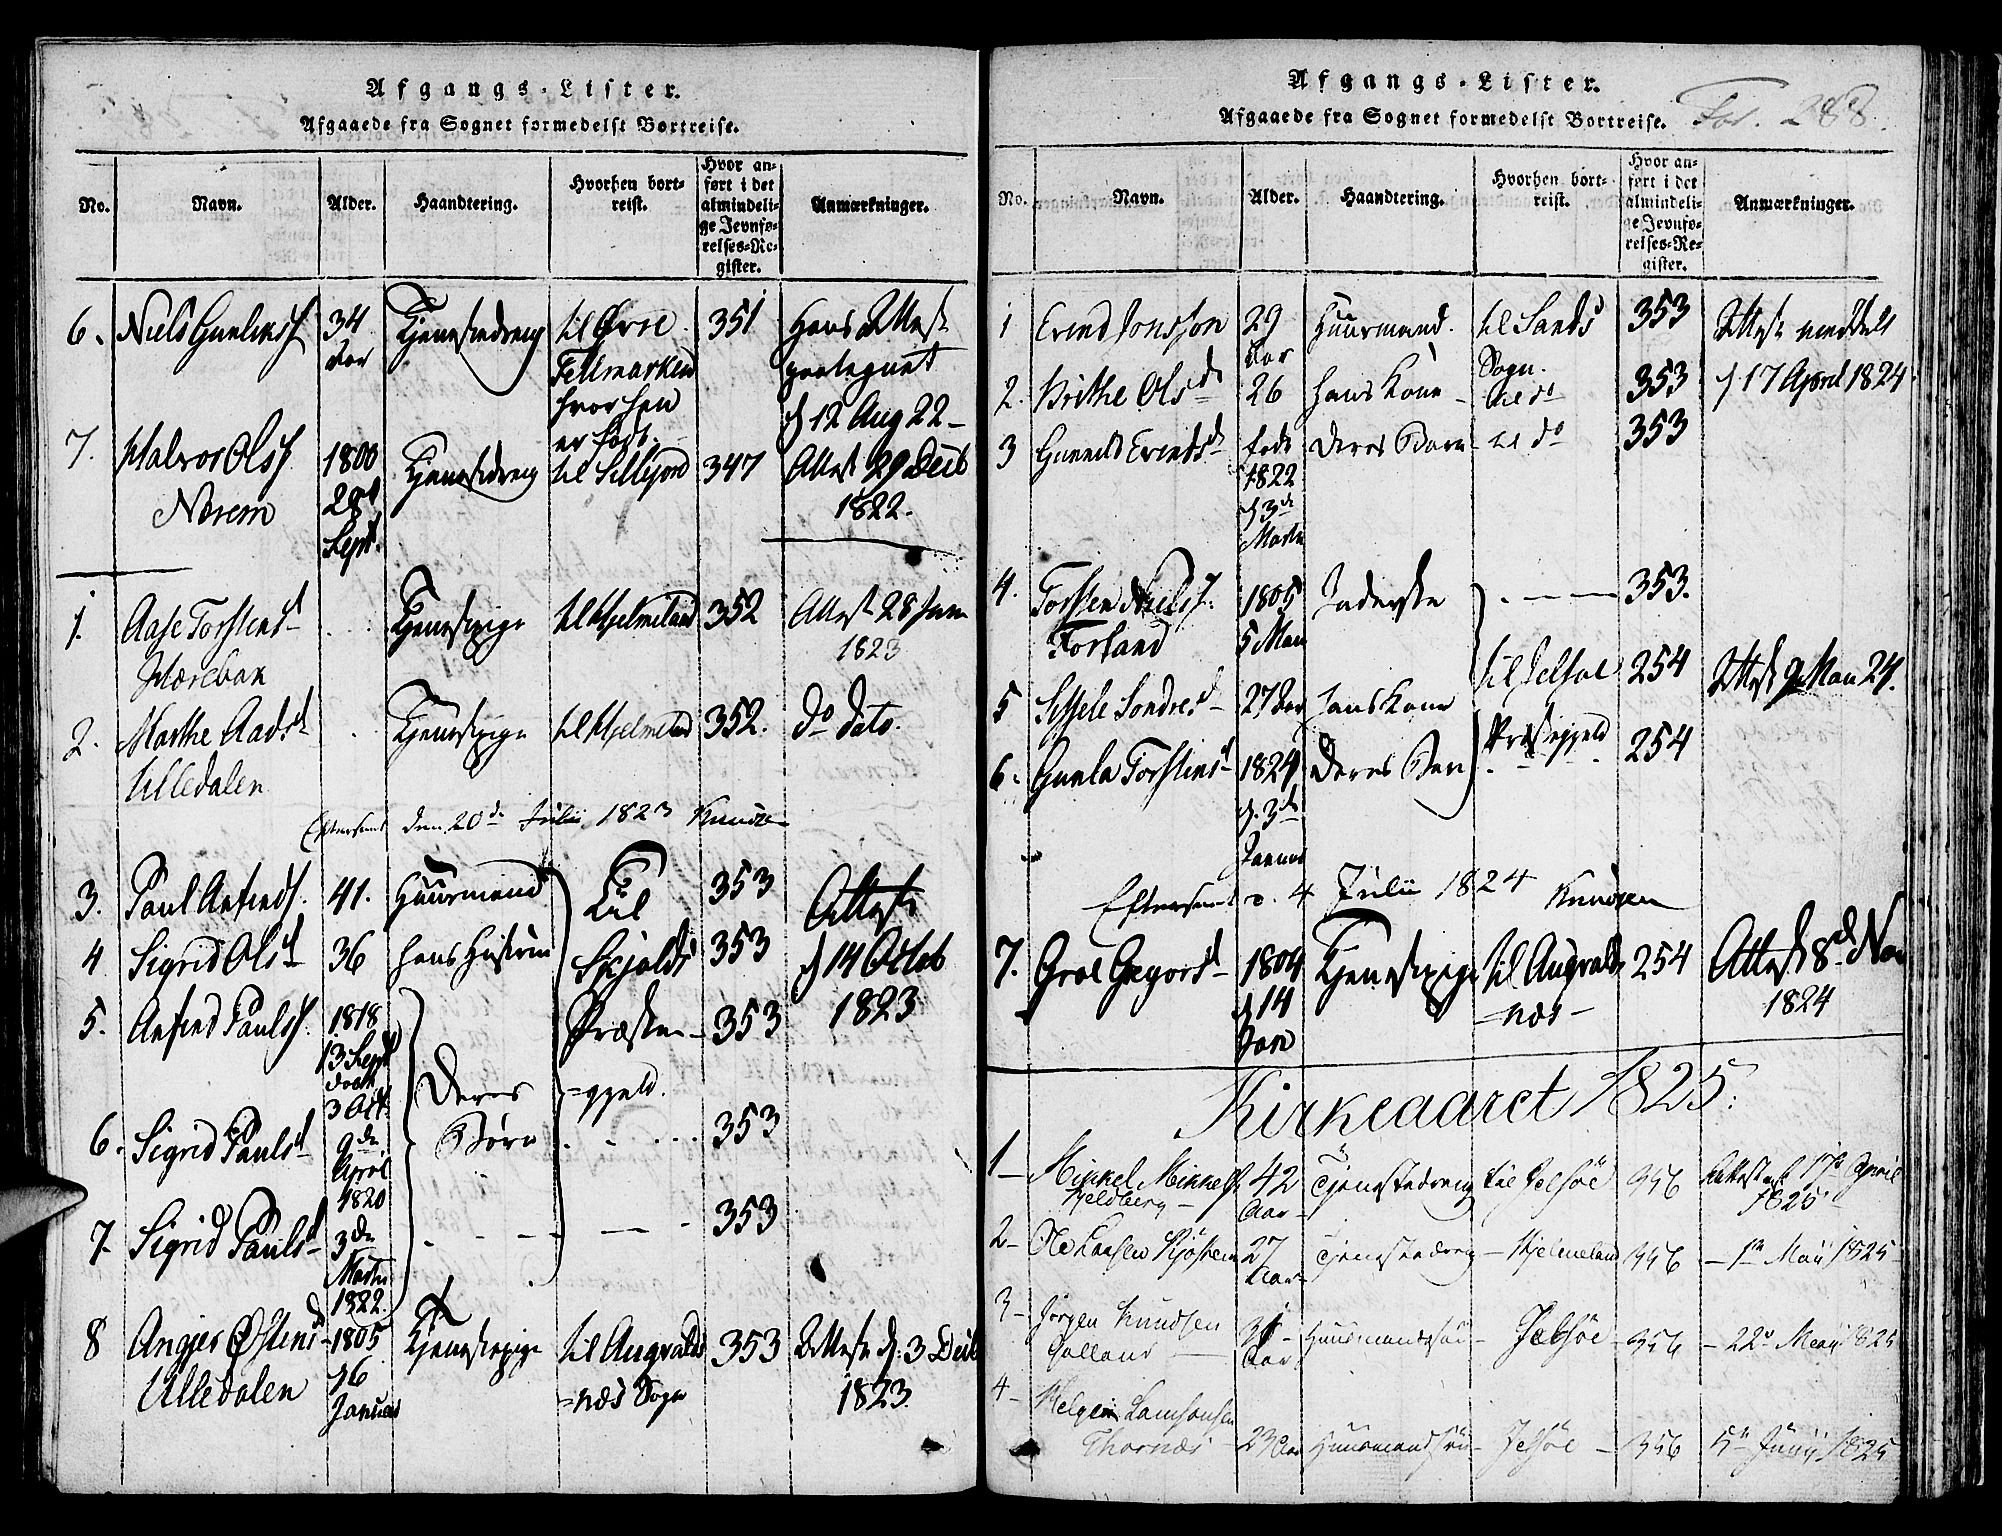 Afgangs-Lister.
Afgaaede fra Sognet formedelst Bortreise.
No. Navn. Alder. Haandtering. Hvorhen bortreist. Hvor anført i det almindelige Jevnførelses-Register. Anmærkninger.
6. Niels Gunleiksf 34 Aar Tjenestedreng til Øvre Tellmarken hvor han er født. 351 Hans Attest paategnet d 12 Aug 22
7. Halvor Olsf Nærem 1800 28d Sept. Tjenestedreng til Sillejord 347 Attest 29 Decb 1822.
1. Aase Torstensd Tjenestepige til Hjelmeland 352 Attest 28 Jun 1823
2. Marthe Aadsd Ulledalen Tjenestepige til Hjelmeland 352. do dato.
Efterseet den 20de Julii 1823 Knudsen
3. Paul Anfinds. 41. Huusmand til Skjolds Præstegjeld. 353 Attest d 14 Octob 1823
4 Sigrid Olsd 36 hans Hustrue 353
5. Anfind Paulsf. 1818 13 Sept døbt 3 Oct. Deres Børn 353
6. Sigrid Paulsd 9de April 1820 353
7. Sigrid Paulsd 3de Martii 1822. 353
8 Østensd Ulledalen 1805 16 Januar Tjenestepige til Augvalds=næs Sogn 353 Attest d. 3 Decb 1823.
Afgangs-Lister.
Afgaaede fra Sognet formedelst Bortreise. Fol. 288.
No. Navn. Alder. Haandtering. Hvorhen bortreist. Hvor anført i det almindelige Jevnførelses-Register. Anmærkninger.
1 Erind Jonsson 29 Aar Huusmand. til Sands Sogn. 353 Attest meddelt
2. Brithe Olsd 26 hans Kone til do 353 d 17 April 1824
3 Gunnild Erindsd født 1822 d 3de Martii Deres Barn til do 353
4. Torsten Nielsf. Forland 1805 5 Mai Inderste 353.
5 Sissele Sondresd 27 Aar hans Kone til Jelsøe Præstegjeld 254 Attest 9 Mai 24.
6. Gunla Torstensd 1824 d. 3de Januar Deres Barn 254
Efterseet d. 4 Julii 1824 Knudsen
7. Groe Gregorsd 1804 d 14 Jan Tjenestepige til Augvalds=næs 254 Attest 8de Nov 1824
Kirkeaaret 1825.
1 Mikkel Mikkelsf. 42 Aar Tjenestedreng til Jelsøe 356 Attest 17de April 1825
2 Ole Larsen 27 Aar Tjenestedreng Hjelmeland 356 1te Maii 1825
3 Jørgen Knudsen Aar Huusmandssøn Jelsøe 356 22de Maii 1825
4 Helge Samsonsen Thornæs 23 Aar Huusmandssøn Jelsøe 356 5te Junii 1825